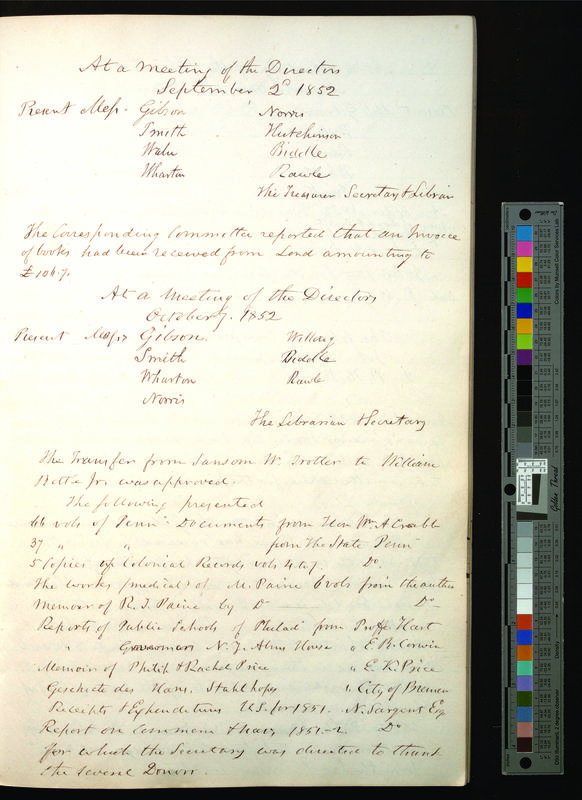 At a meeting of the Directors
September 2d 1852
Present Messrs. Gibson Norris
Smith Hutchinson
Waln Biddle
Wharton Rawle
The Treasurer Secretary & Librarian
The Corresponding Committee reported that an Invoice
of books had been received from Lond amounting to
£106.7.
At a Meeting of the Directors
October 7. 1852
Present Messrs Gibson.
Smith Biddle
Wharton Rawle
Norris
The Librarian & Secretary
The Transfer from Sansom W. Trotter to William
Bettle Jr. was approved.
The following presented
vols of Penna Documents from Hon Wm. A Crabb
37 " " from The State Penn
5 Copies of Colonial Records vols 4 to 7. Do.
The works (medical) of M. Paine 6 vols from the author
Memoir of R. T. Paine by Do Do
Reports of Public Schools of Philada from Profr Hart
N. Y. Alms House " E. B. Corwin
Memoir of Philip & Rachel Price " E. K. Price
Geschichte des Hans. Stahlhofes " City of Bremen
Receipts & Expenditures U.S. for 1851. N. Sargent Esq
Report on Commerce & Nav. 1851-2 Do
for which the Secretary was directed to thank
the several Donors.
Golden Thread